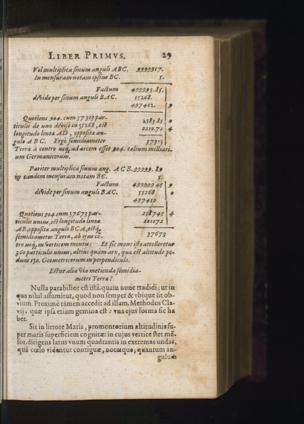 LIBER PRIMUS. 29
Vel multiplica sinum anguli ABC. 9999917.
In mensuram notam ipsius BC. 5.
Factum
divide per sinum anguli BAC. 55268.
497412.
Quotiens 904. cum 37313 par-
ticulis de uno
longitudo lineæ AD, opposita an-
gula A BC. Ergo semidiameter
Terræ à centro usq; ad arcem esset 904. talium milliari-
um Germanicorum.
Pariter multiplica sinum ang. ACB. 99999. 89
in eandem mensuram notam BC. 5.
Factum
divide per sinum anguli BAC. 55268
497412.
Quotiens 904. cum 37673 par-
ticulis unius, est longitudo lineæ
AB, opposita anguli BCA, est q;
semidiameter Terræ, ab ejus cen-
tro usq; in verticem montis; Et sic mons iste attolleretur
360 particulis unius, altius quàm arx, quæ est altitudo pe-
dum Geometricorum in perpendiculo.
37673
Estne alia via metienda semidia-
metri Terræ?
Nulla parabilior est ista, quam nunc tradidi; ut in
qua nihil assumitur, quod non semper & ubique sit ob-
vium. Proximè tamen accedit ad illam, Methodus Cla-
vij, quæ ipsa etiam gemina est: una ejus forma sic ha-
bet.
Sit in littore Maris, promontorium altitudinis su-
per maris superficiem cognitæ: in cujus vertice
dirigens latus unum quadrantis in extremas undas,
quâ cœlo videntur contiguæ, notatque, quantum an-
gulus